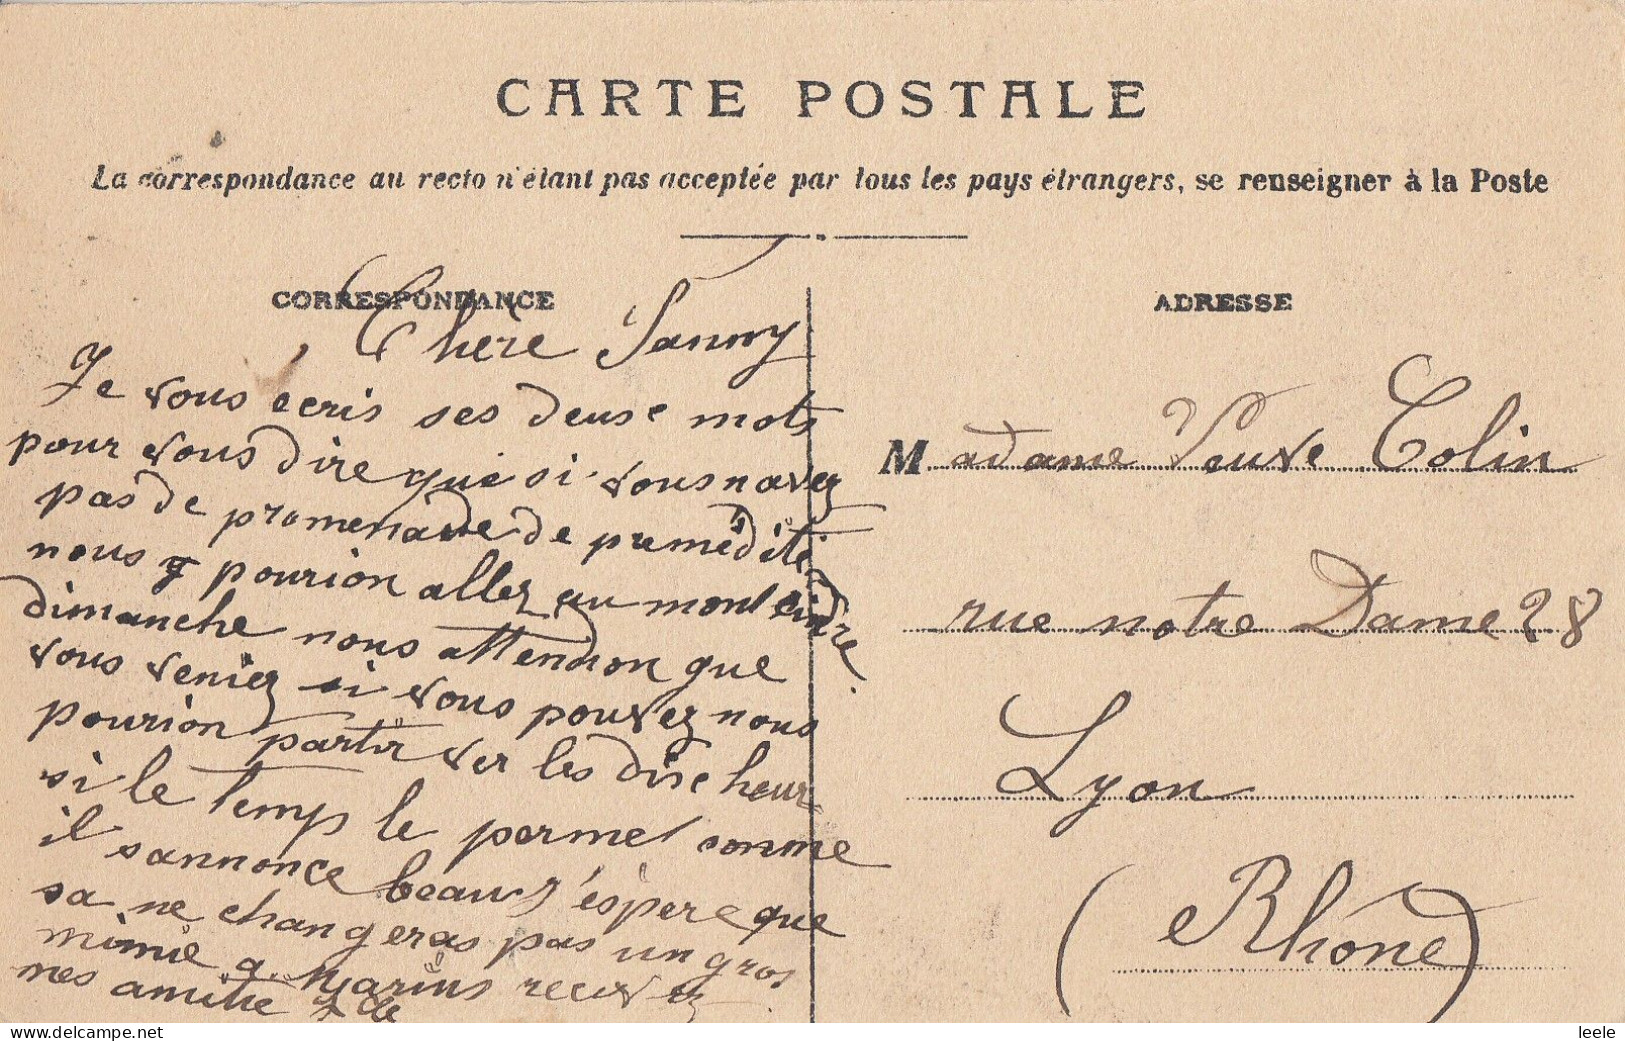 CARTE POSTALE
La correspondance au recto n'étant pas acceptée par tous les pays étrangers, se renseigner à la Poste
CORRESPONDANCE
Chère Fanny
Je vous écris ses deuse mots
pour vous dire que si vous navez
pas de promenade de prémédité
nous pourion allez au mont cindre
dimanche nous attendion que
vous veniez si vous pouvez nous
pourion partir ver les dise heure
si le temp le permet comme
il sannonce beau j'éspère que
sa ne changeras pas un gros
mimie a Marius recever
mes amitié
ADRESSE
Madame Veuve Colin
rue notre Dame 28
Lyon
(Rhône)
www.delcampe.net
leele